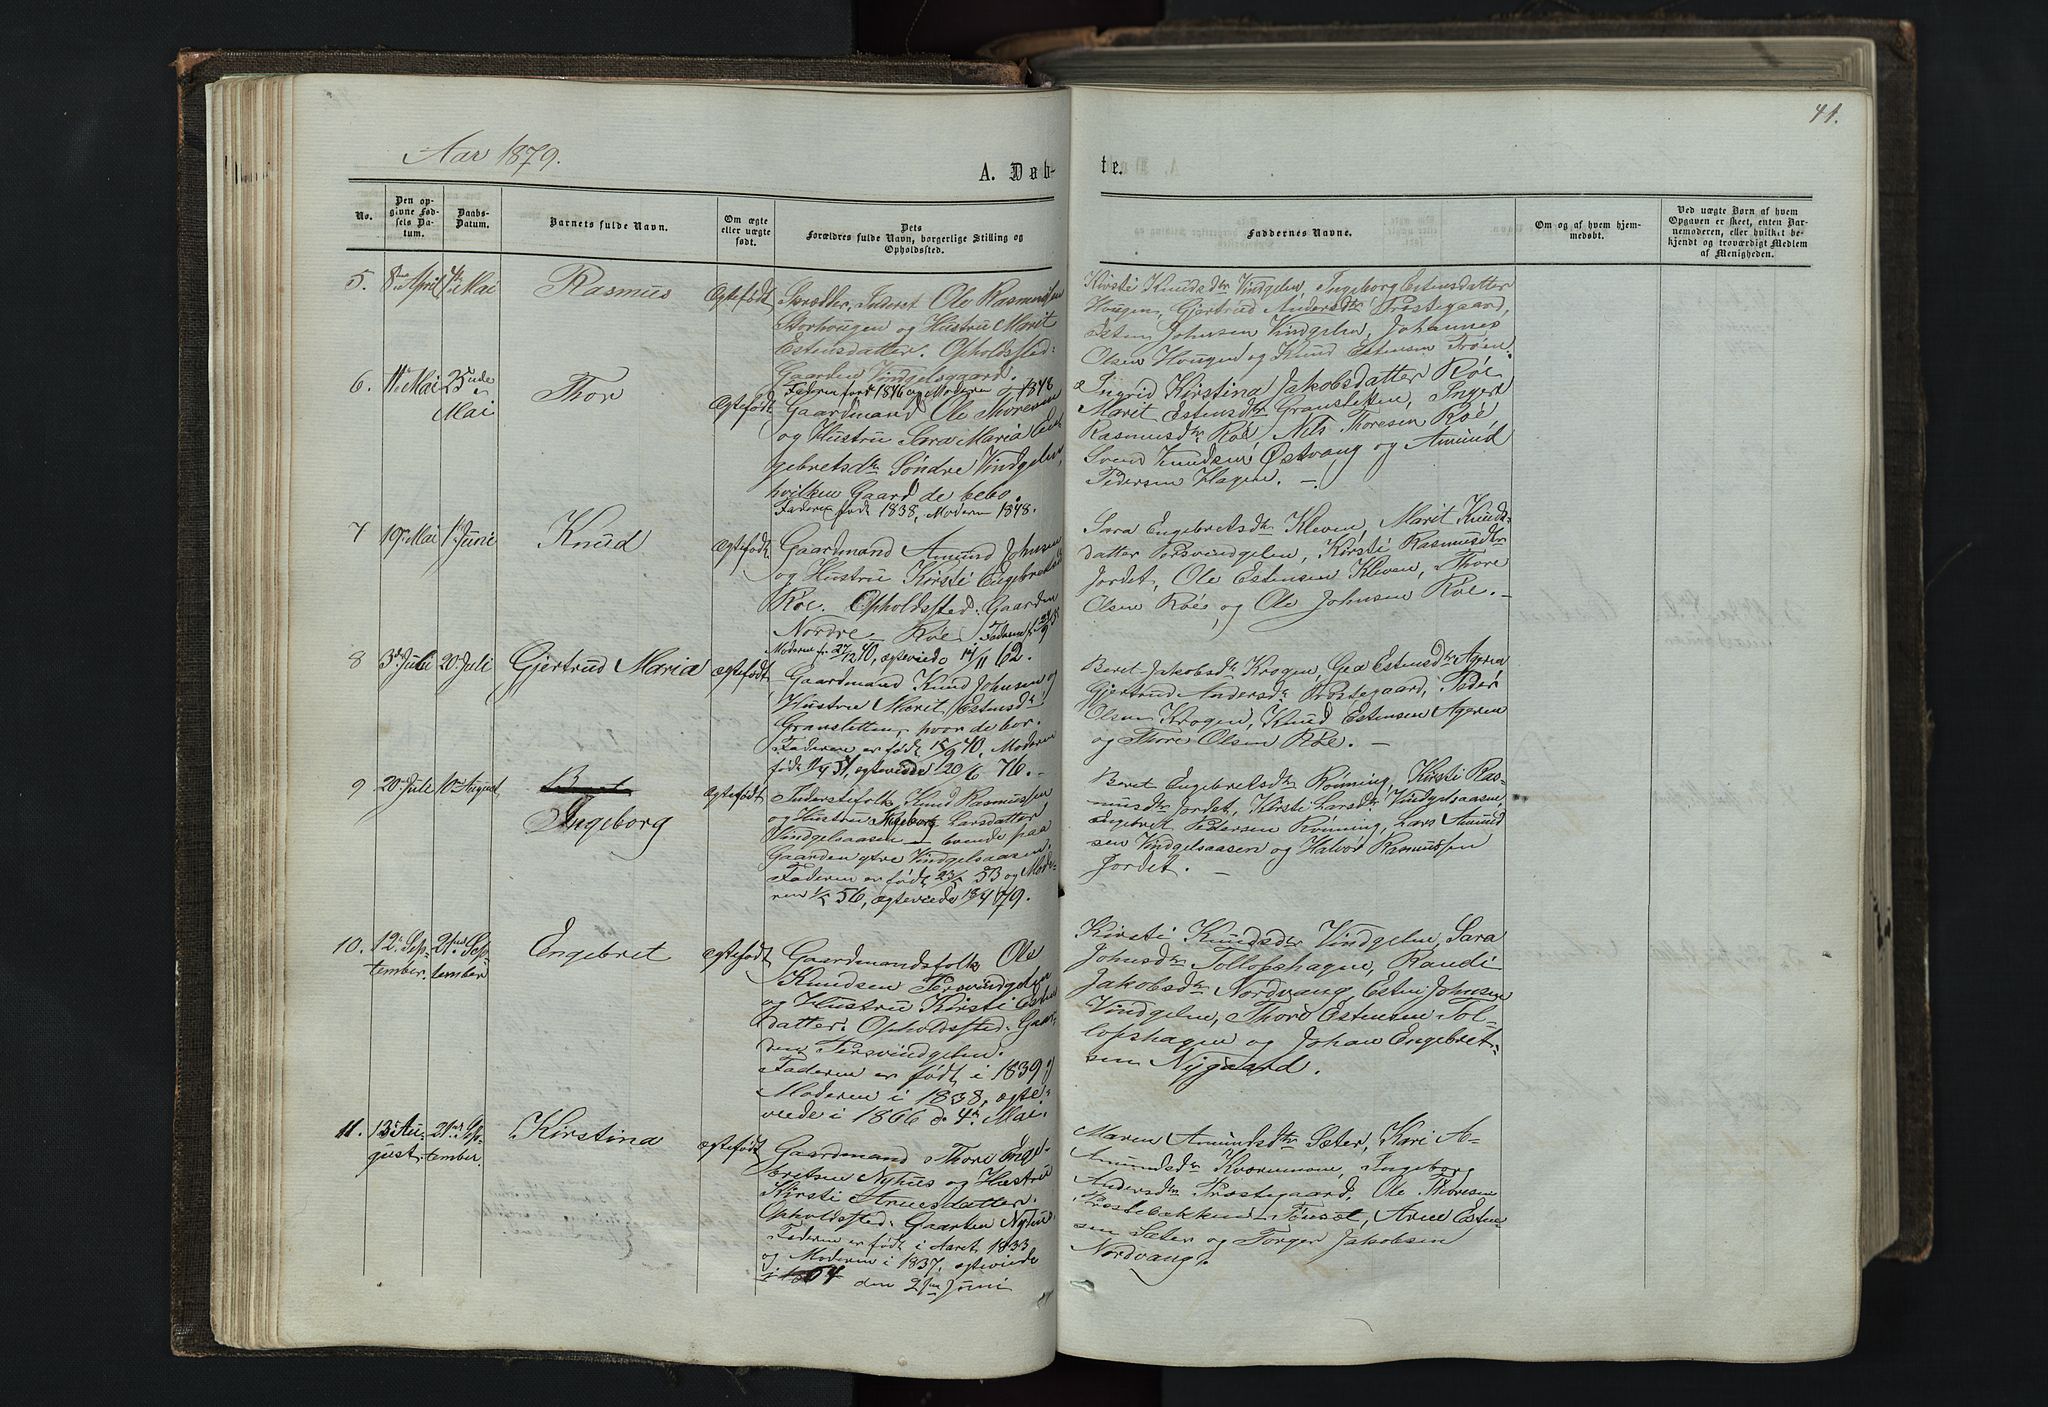 41.
Aar 1879.
A. Døb-
te.
No.
Den op-
givne Fød-
sels Da-
tum.
Daabs-
Datum.
Barnets fulde Navn.
Om ægte
eller uægte
født.
Dets
Forældres fulde Navn, borgerlige Stilling og
Opholdssted.
Faddernes Navne.
Om og af hvem hjem-
medøbt.
Ved uægte Børn af hvem
Opgaven er skeet, enten Bar-
nemoderen, eller hvilket be-
kjendt og troværdigt Medlem
af Menigheden.
5. 8de April 4de Mai Rasmus Ægtefødt
Skrædder, Inderst Ole Rasmussen
Storhougen og Hustru Marit
Estensdatter. Opholdssted:
Gaarden Vindgelsgaard.
Faderen født 1846 og Moderen 1848
Kirsti Knudsdtr Vindgelen, Ingeborg Estensdatter
Hougen, Gjertrud Andersdtr Præstegaard,
Esten Johnsen Vindgelen, Johannes
Olsen Hougen og Knud Estensen Trøen.
6. 11te Mai 25nde Mai Thor Ægtefødt
Gaardmand Ole Thoresen
og Hustru Sara Maria En-
gebretsdtr Søndre Vindgelen,
hvilken Gaard de bebo.
Faderen født 1838, Moderen 1848.
Ingrid Kirstina Jakobsdatter Røe
Marit Estensdtr Gransletten, Inger
Rasmusdtr Røe, Nils Thoresen Røe
Svend Knudsen Østvang og Amund
Pedersen Hagen. —
7 19de Mai 1ste Juni Knud Ægtefødt
Gaardmand Amund Johnsen
og Hustru Kirsti Engebretsdtr
Røe. Opholdssted: Gaarden
Nordre Røe. Faderen f.
Moderen f. 27/12 40, ægteviede 14/11 62.
Sara Engebretsdtr Kleven, Marit Knuds-
datter Persvindgelen, Kirsti Rasmusdtr
Jordet, Ole Estensen Kleven, Thore
Olsen Røe og Ole Johnsen Røe. —
8 3die Juli 20 Juli Gjertrud Maria Ægtefødt
Gaardmand Knud Johnsen og
Hustru Marit Estensdtr
Gransletten, hvor de bor.
Faderen er født 15/9 40, Moderen
født 11/9 51, ægteviede 20/6 76. —
Beret Jakobsdtr Krogen, Gea Estensdtr Ageren
Gjertrud Andersdtr Præstegaard, Peder
Olsen Krogen, Knud Estensen Ageren
og Thore Olsen Røe. —
9 20de Juli 10de August Beret
Ingeborg Ægtefødt
Inderstfolk, Knud Rasmussen
og Hustru Ingeborg Larsdatter
Vindgelsaasen — boende paa
Gaarden ytre Vindgelsaasen.
Faderen er født 53 og Mode-
ren 56, ægteviede 79.
Beret Engebretsdtr Rønning, Kirsti Ras-
musdtr Jordet, Kirsti Larsdtr Vindgelsaasen,
Engebret Pedersen Rønning, Lars Amund
sen Vindgelsaasen og Halvor Rasmussen
Jordet. —
10. 12te Sep-
tember. 21de Sep-
tember Engebret Ægtefødt
Gaardmandsfolk Ole
Knudsen Persvindgelen
og Hustru Kirsti Estens
datter. Opholdssted: Gaar-
den Persvindgelen.
Faderen er født i 1839 og
Moderen i 1838, ægte-
viede i 1866 d. 4de Mai.
Kirsti Knudsdtr Vindgelen, Sara
Johnsdtr Tollofshagen, Randi
Jakobsdtr Nordvang, Esten Johnsen
Vindgelen, Thore Estensen Tol-
lofshagen og Johan Engebret-
sen Nygaard.
11. 13de Au-
gust. 21de Sep-
tember. Kirstina Ægtefødt
Gaardmand Thore Enge-
bretsen Nyhus og Hustru
Kirsti Arnesdatter.
Opholdssted: Gaarden Nyhus.
Faderen er født i Aaret 1833
og Moderen i 1837, ægteviede
den 21de Juni
Maren Amundsdtr Sæter, Kari A-
mundsdtr Kværnmoen, Ingeborg
Andersdtr Præstegaard, Ole Thoresen
Præstebakken Tønset, Arne Esten-
sen Sæter og Torger Jakobsen
Nordvang.